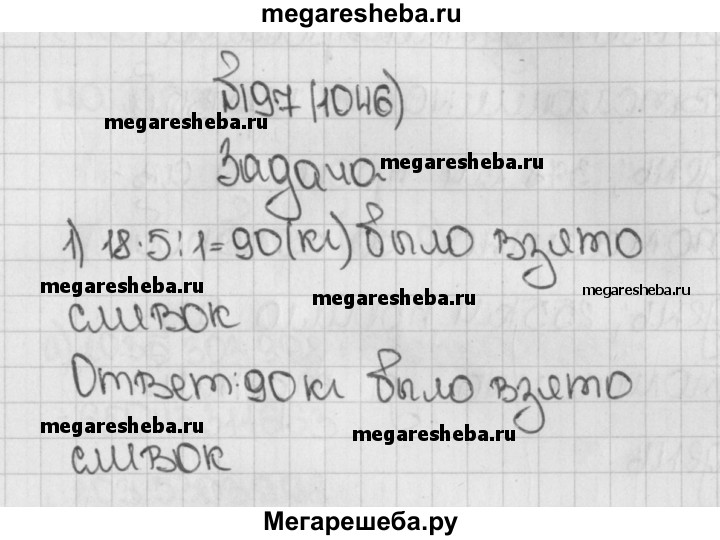 megaresheba.ru
№197(1046)
megaresheba.ru
Задача
megaresheba.ru
1) 18·5:1=90(кг) было взято
megaresheba.ru
megaresheba.ru
megaresheba.ru
сливок
Ответ: 90 кг было взято
megaresheba.ru
megaresheba.ru
сливок
Мегарешеба.ру